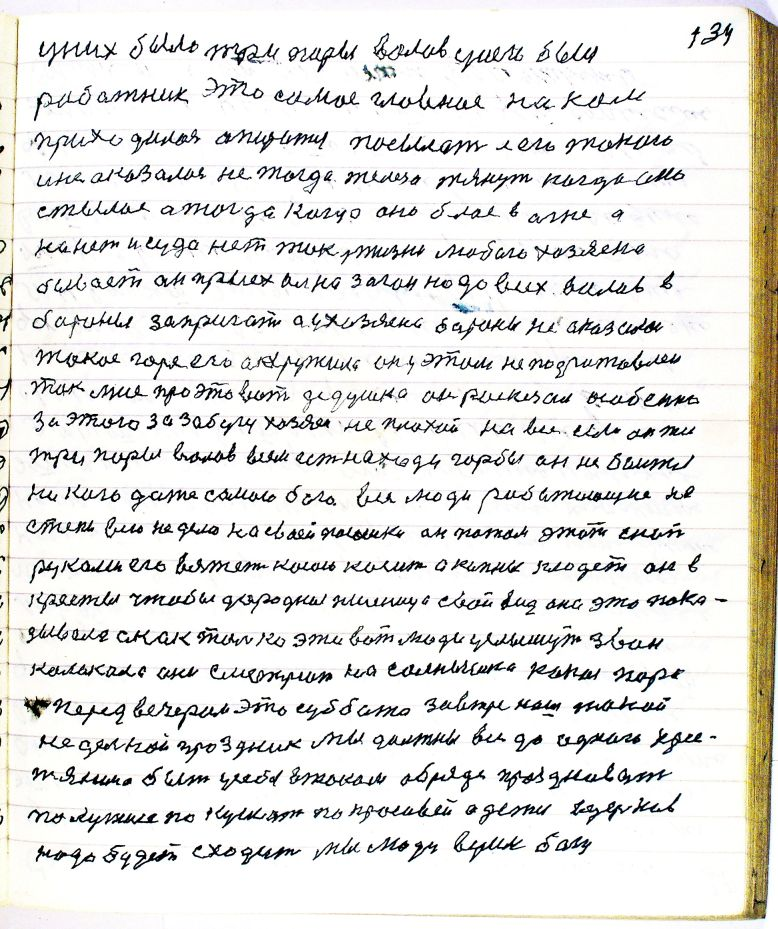 134
у них было три пары валов у него был
работник это самое главное на кали
приходилоя опирати посылат его такого
и не оказалоя не тогда железо тянут когда оно
стылое а тогда когда оно было в огне а
на нет и суда нет так жизни любого хозяена
бывает он приехал на загон надо всех валов в
бароны запригати а у хозяена бароны не оказалои
такое горе его окружила он у этом не подготовлен
так мне про это вот дедушка он расказал особенно
за этого за забугу хозяен не плохой на все село он жи
три пары валов всем естнаходи горбы он не боитя
никого даже самого бога все люди работающие не
степи всю неделю на своей полоски он потом этот сноп
руками его вяжет косою косит а копны кладет он в
кресты чтобы дородная пшеница свой вид она это пока-
зывала а как толко эти вот люди услышут звон
калакала они смотрят на солнышка какая пора
перед вечером это суббота завтре наш такой
неделной праздник мы должны все до одного хрес-
тянина быт у себя в таком обряде праздноват
получше по кушат по красивей одети в церков
надо будет сходит мы люди верим богу